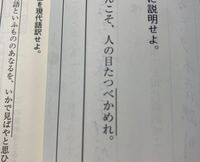 に説明せよ。
んこそ、人の目たつべかめれ。
を現代語訳せよ。
語といふもののあなるを、いかで見ばやと思ひ